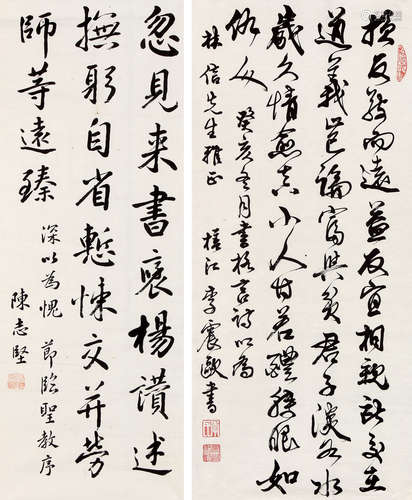 損友敬而遠益友宜相親所交在
道義豈論富與貧君子淡如水
歲久情愈真小人甘若醴轉眼如
仇人 癸亥月書格言詩以為
林信先生雅正 江李震歐書
忽見来書褒楊讚述
撫躬自省慙悚交并勞
師等遠臻
深以為愧 節臨聖教序
陳志堅